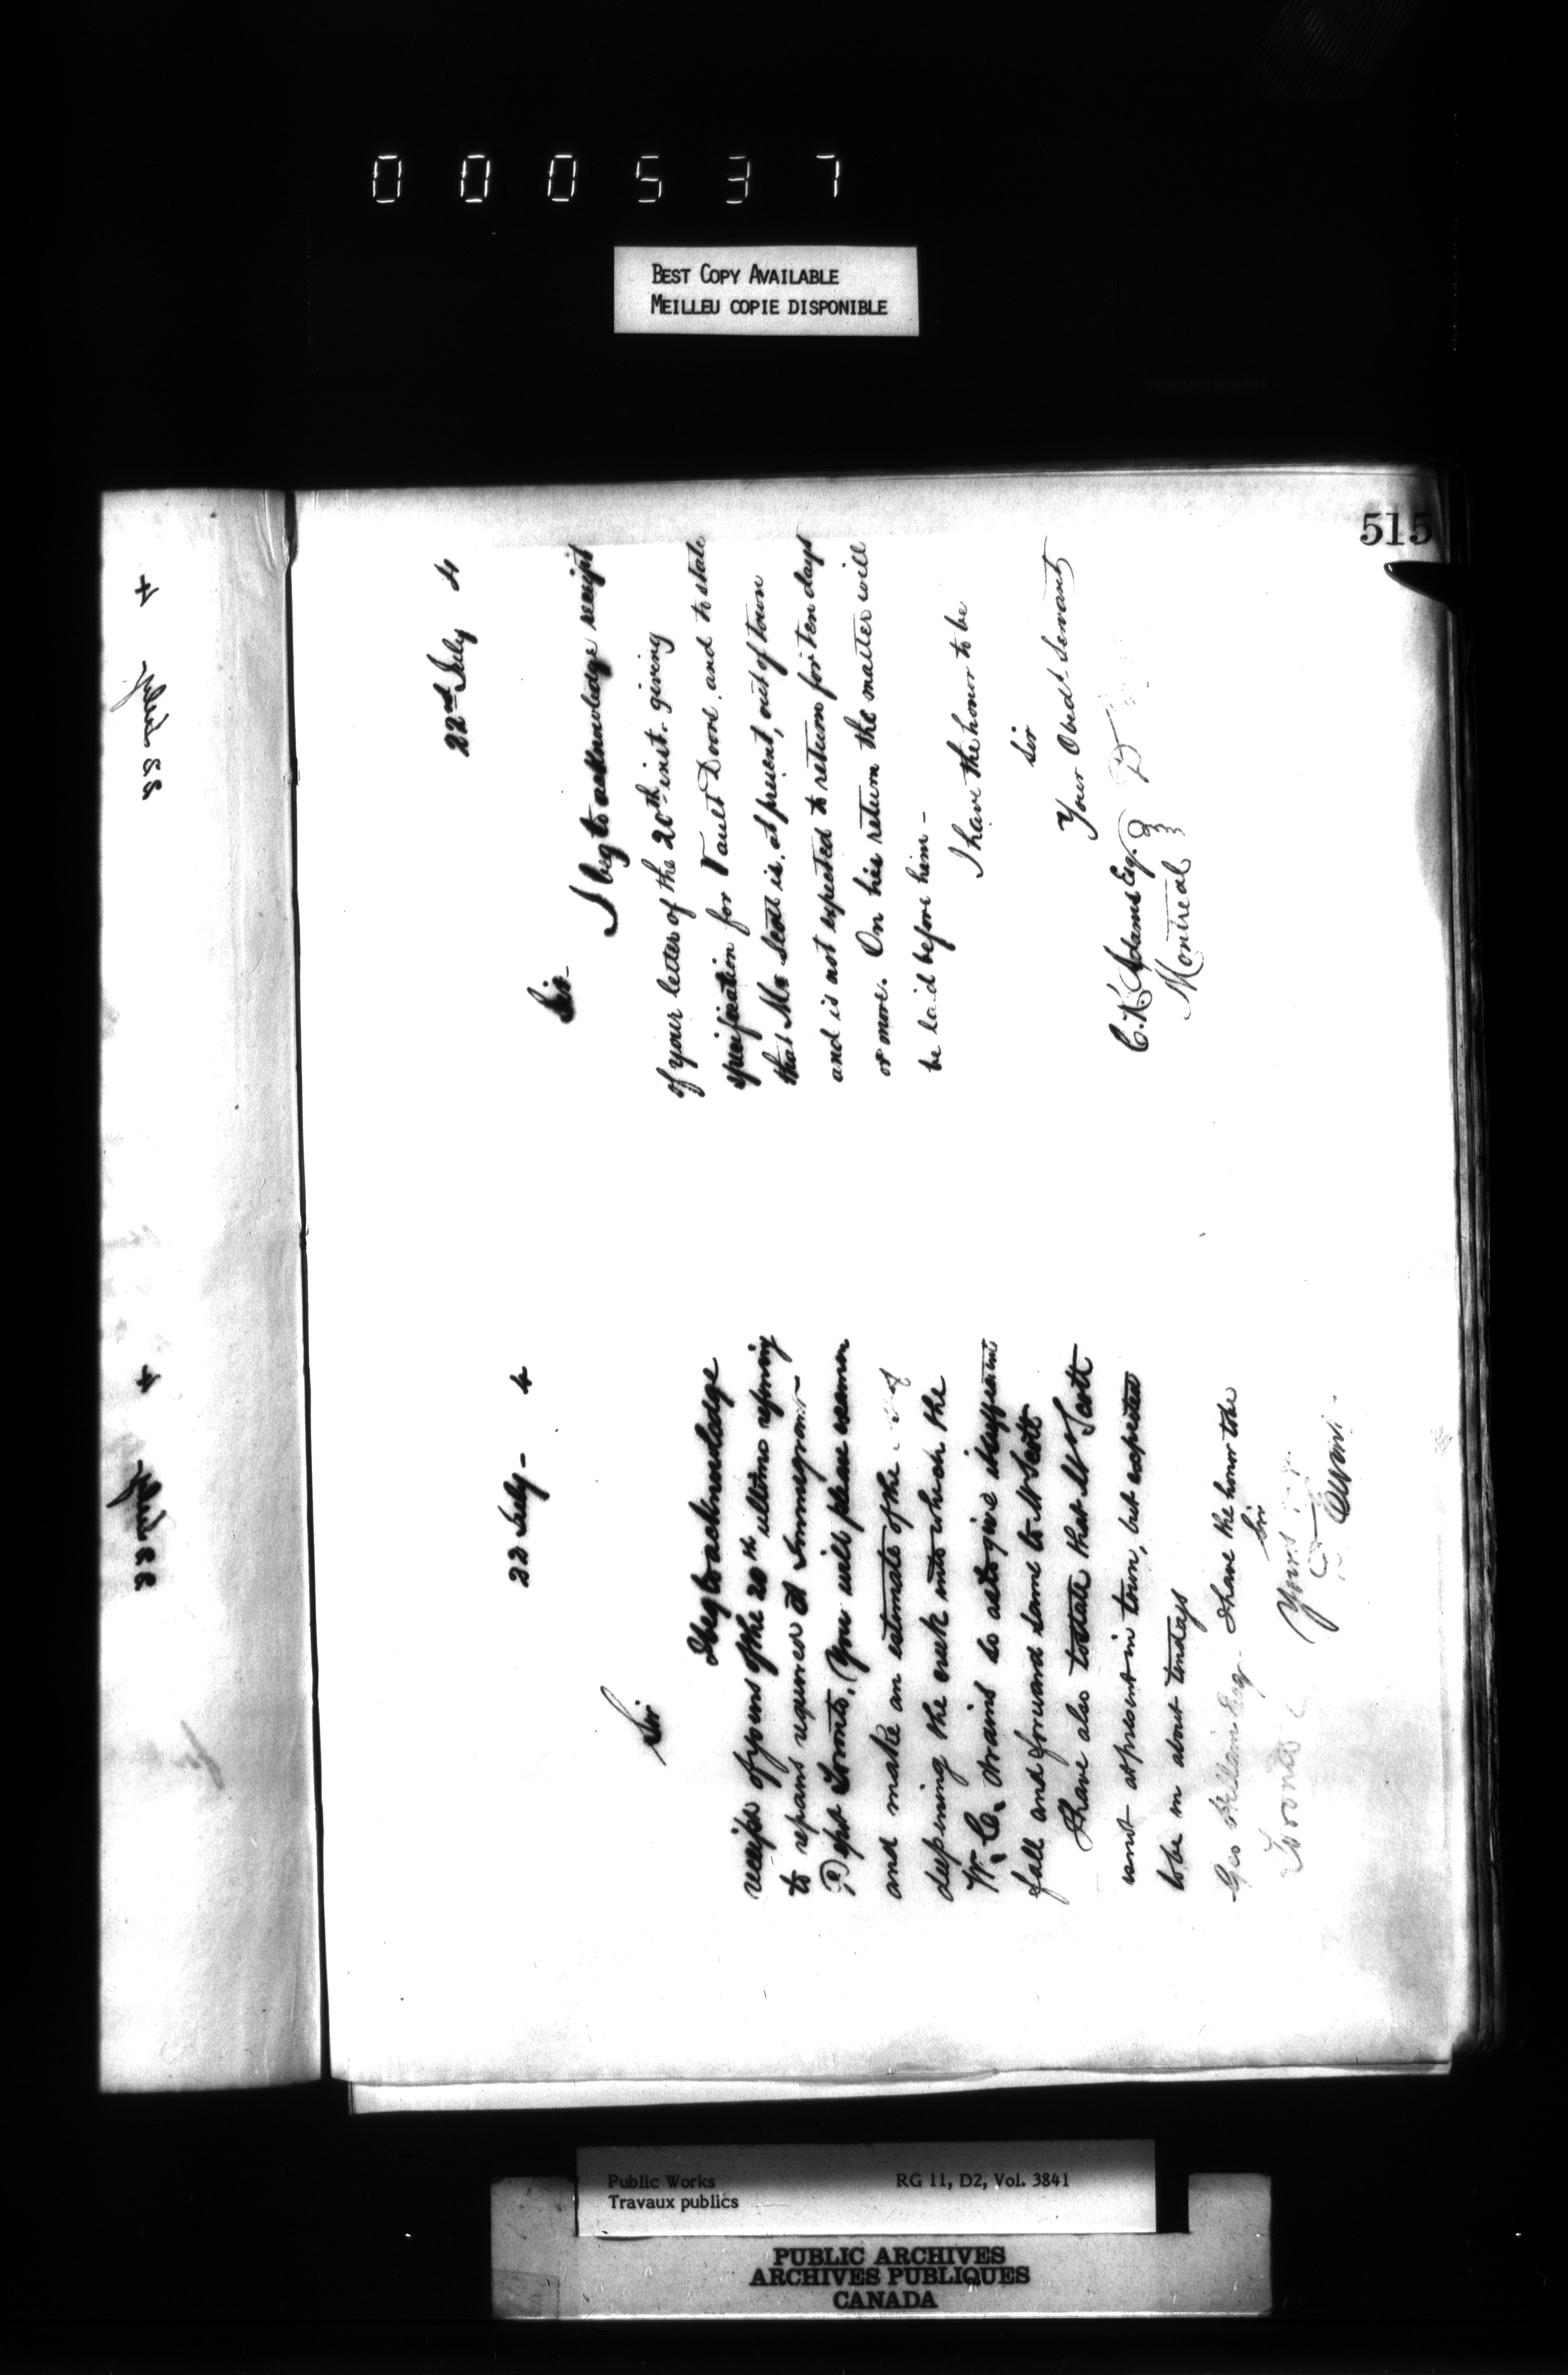 000537
BEST COPY AVAILABLE
MEILLEU COPIE DISPONIBLE
515
22 July - 4
Sir
I beg to acknowledge
receipt of yours of the 20th ultimo refering
to repairs required at Immigrant
Depot Toronto, (You will please
and make an estimate of the
deepening the creek into which the
W. C. drains so as to give sufficient
fall and forward same to Mr Scott
I have also to state that Mr Scott
is not at present in town, but expected
to be in about ten days
I have the honor to be
Sir
Geo Esq.
Toronto
Yours
22nd July 4
Sir-
I beg to acknowledge receipt
of your letter of the 20th inst. giving
specification for Vault Doors, and to state
that Mr Scott is, at present, out of town
and is not expected to return for ten days
or more. On his return the matter will
be laid before him -
I have the honor to be
Sir
Your Obedt Servant
C. K. Adams Esq.
Montreal
22 July 4
22 July 4
Public Works
Travaux publics
RG 11, D2, Vol. 3841
PUBLIC ARCHIVES
ARCHIVES PUBLIQUES
CANADA